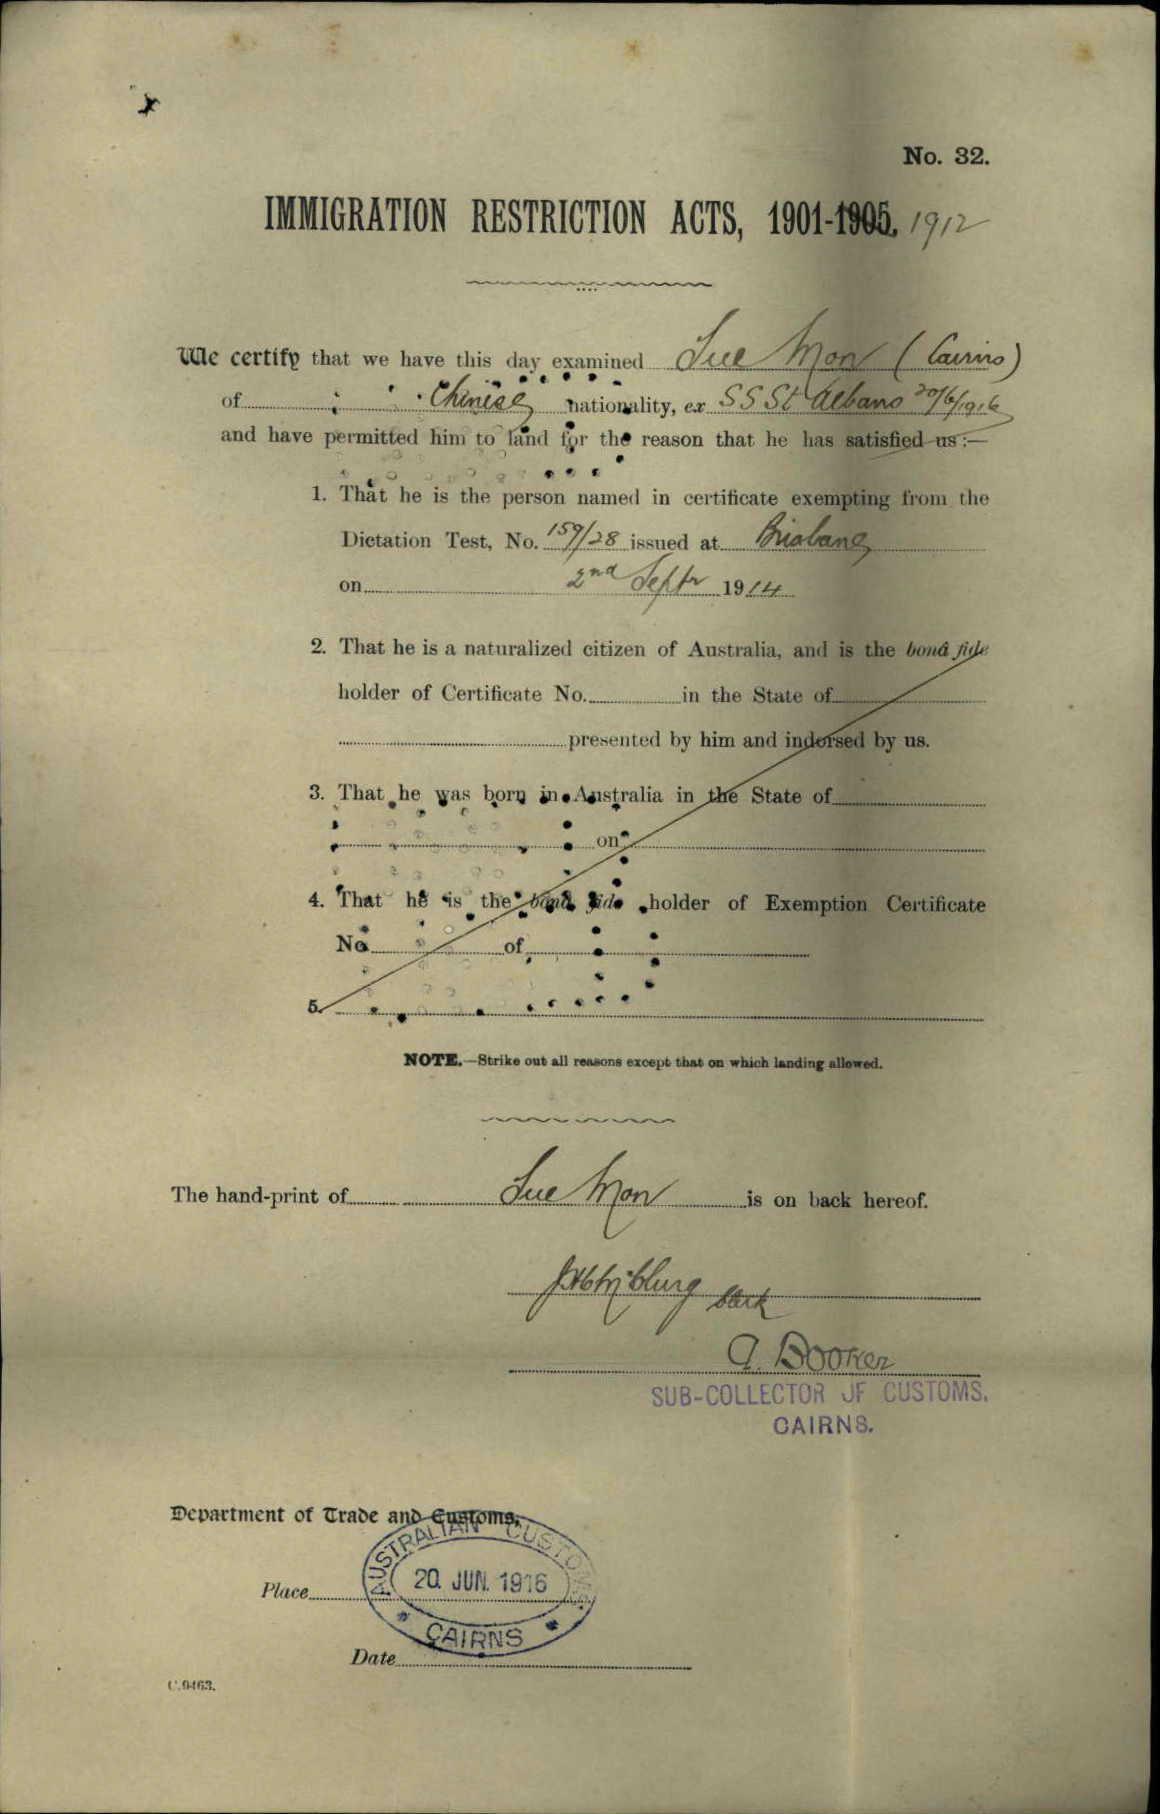 No. 32.
IMMIGRATION RESTRICTION ACTS, 1901-1905. 1912
We certify that we have this day examined Sue Mon (Cairns)
of Chinese nationality, ex S S St Albans 20/6/1916
and have permitted him to land for the reason that he has satisfied us :—
1. That he is the person named in certificate exempting from the
Dictation Test, No. 159/28 issued at Brisbane
on 2nd Septr 1914
2. That he is a naturalized citizen of Australia, and is the bonâ fide
holder of Certificate No. in the State of
presented by him and indorsed by us.
3. That he was born in Australia in the State of
on
4. That he is the bonâ fide holder of Exemption Certificate
No. of
5.
NOTE.—Strike out all reasons except that on which landing allowed.
The hand-print of Sue Mon is on back hereof.
Clerk
A. Booker
SUB-COLLECTOR OF CUSTOMS.
CAIRNS.
Department of Trade and Customs,
AUSTRALIAN CUSTOMS.
Place 20. JUN. 1916
CAIRNS
Date
C.9463.